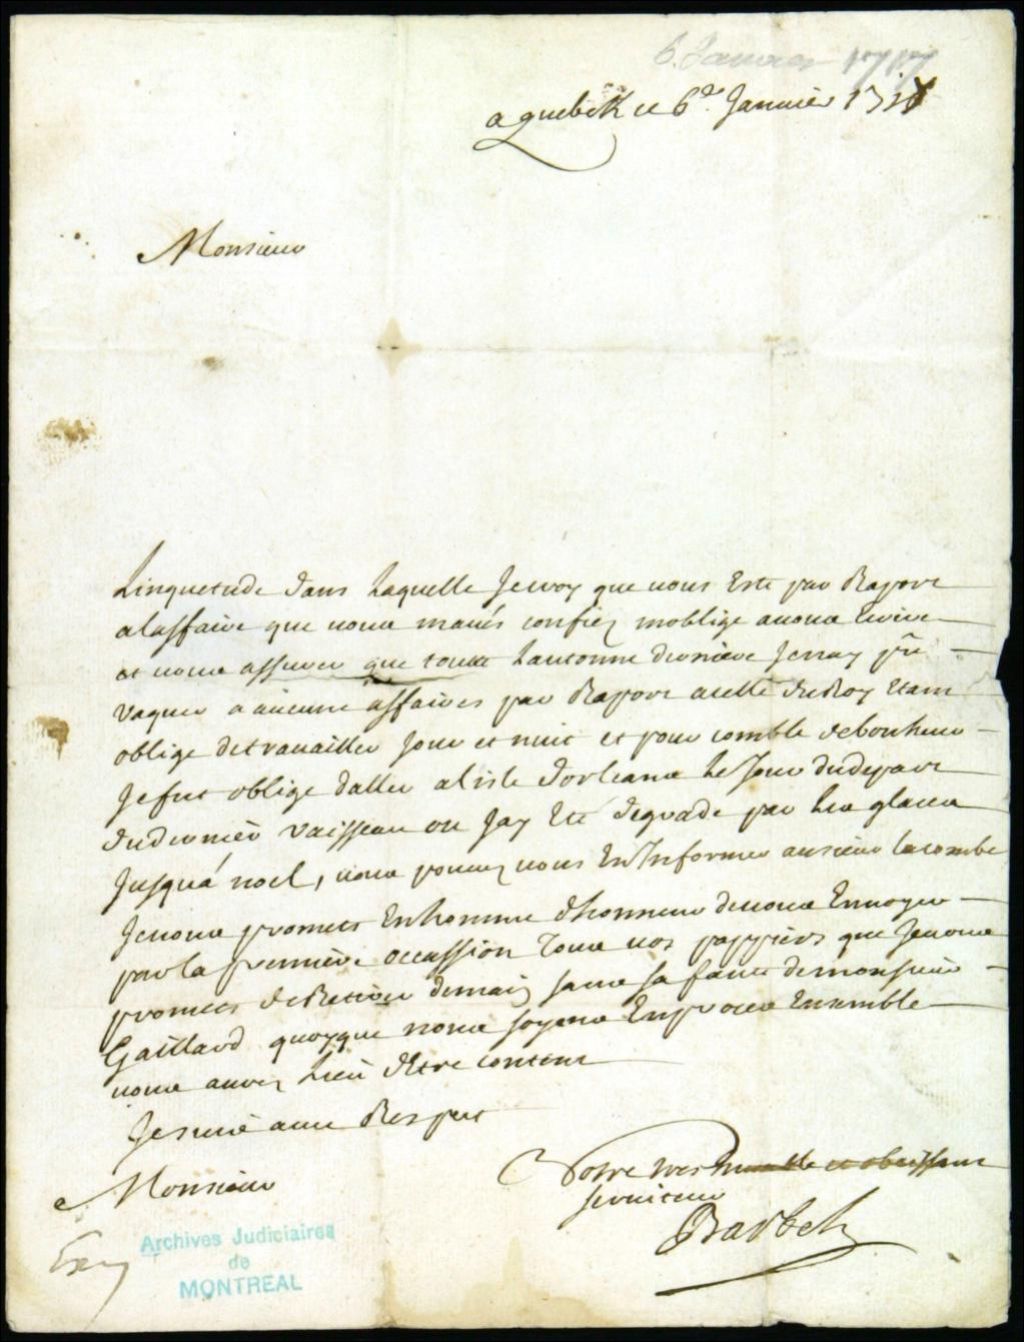 6 Janvier
a quebek ce 6e Janvier
Monsieur
Linquetude dans Laquelle Je voy que vous Este par Raport
alaffaire que vous mavés confiez moblige avous Ecrire
et vous assurer que toutte Lautonne derniere Jenay pû
vaquer a aucune affaires par Raport acelle du Roy Etant
oblige de travailler Jour et nuit et pour comble de bonheur
Je fus oblige daller a lisle dorleans Le Jour du depart
du dernier vaisseau ou Jay Eté degradé par Les glaces
Jusquá noel, vous pouvez vous En Informer au sieur Lacombe
Je vous promets En homme dhonneur de vous Envoyer
par la premiere occassion Tous vos pappiers que Je vous
promets de Retirer demain sans fa faute de monsieur
Gaillard quoyque nous soyons En proces Ensemble
vous aurez Lieu dEtre content
Je suis avec Respect
Monsieur
Votre tres humble et obeissant
serviteur
Barbel
Archives Judiciaires
de
MONTREAL